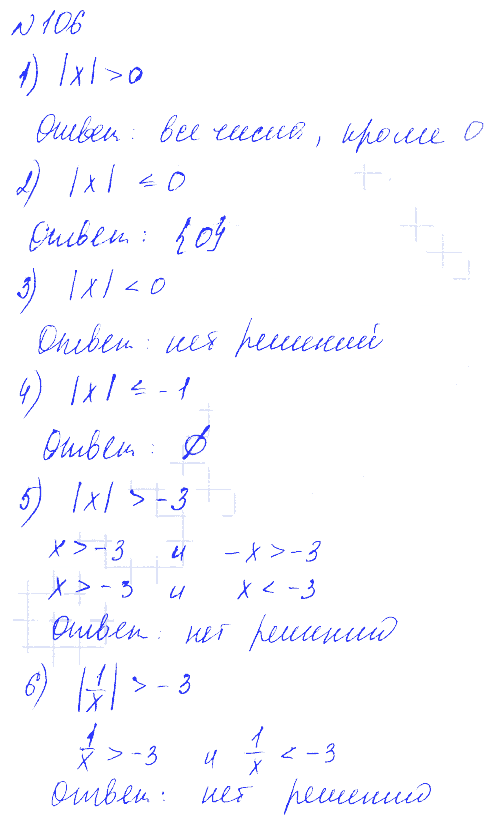 №106
1) |x| > 0
Ответ: все числа, кроме 0
2) |x| ≤ 0
Ответ: {0}
3) |x| < 0
Ответ: нет решений
4) |x| ≤ -1
Ответ: ∅
5) |x| > -3
x > -3 и -x > -3
x > -3 и x < -3
Ответ: нет решению
6) |1/x| > -3
1/x > -3 и 1/x < -3
Ответ: нет решению